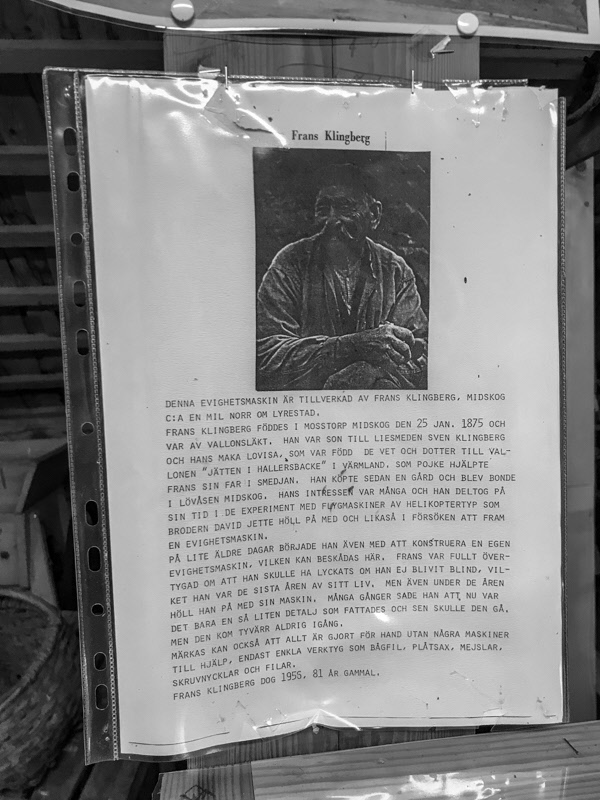 Frans Klingberg
DENNA EVIGHETSMASKIN ÄR TILLVERKAD AV FRANS KLINGBERG, MIDSKOG
C:A EN MIL NORR OM LYRESTAD.
FRANS KLINGBERG FÖDDES I MOSSTORP MIDSKOG DEN 25 JAN. 1875 OCH
VAR AV VALLONSLÄKT. HAN VAR SON TILL LIESMEDEN SVEN KLINGBERG
OCH HANS MAKA LOVISA, SOM VAR FÖDD DE VET OCH DOTTER TILL VAL-
LONEN "JÄTTEN I HALLERSBACKE" I VÄRMLAND. SOM POJKE HJÄLPTE
FRANS SIN FAR I SMEDJAN. HAN KÖPTE SEDAN EN GÅRD OCH BLEV BONDE
I LÖVÅSEN MIDSKOG. HANS INTRESSEN VAR MÅNGA OCH HAN DELTOG PÅ
SIN TID I DE EXPERIMENT MED FLYGMASKINER AV HELIKOPTERTYP SOM
BRODERN DAVID JETTE HÖLL PÅ MED OCH LIKASÅ I FÖRSÖKEN ATT FRAM
EN EVIGHETSMASKIN.
PÅ LITE ÄLDRE DAGAR BÖRJADE HAN ÄVEN MED ATT KONSTRUERA EN EGEN
EVIGHETSMASKIN, VILKEN KAN BESKÅDAS HÄR. FRANS VAR FULLT ÖVER-
TYGAD OM ATT HAN SKULLE HA LYCKATS OM HAN EJ BLIVIT BLIND, VIL-
KET HAN VAR DE SISTA ÅREN AV SITT LIV. MEN ÄVEN UNDER DE ÅREN
HÖLL HAN PÅ MED SIN MASKIN. MÅNGA GÅNGER SADE HAN ATT NU VAR
DET BARA EN SÅ LITEN DETALJ SOM FATTADES OCH SEN SKULLE DEN GÅ.
MEN DEN KOM TYVÄRR ALDRIG IGÅNG.
MÄRKAS KAN OCKSÅ ATT ALLT ÄR GJORT FÖR HAND UTAN NÅGRA MASKINER
TILL HJÄLP, ENDAST ENKLA VERKTYG SOM BÅGFIL, PLÅTSAX, MEJSLAR,
SKRUVNYCKLAR OCH FILAR.
FRANS KLINGBERG DOG 1955, 81 ÅR GAMMAL.